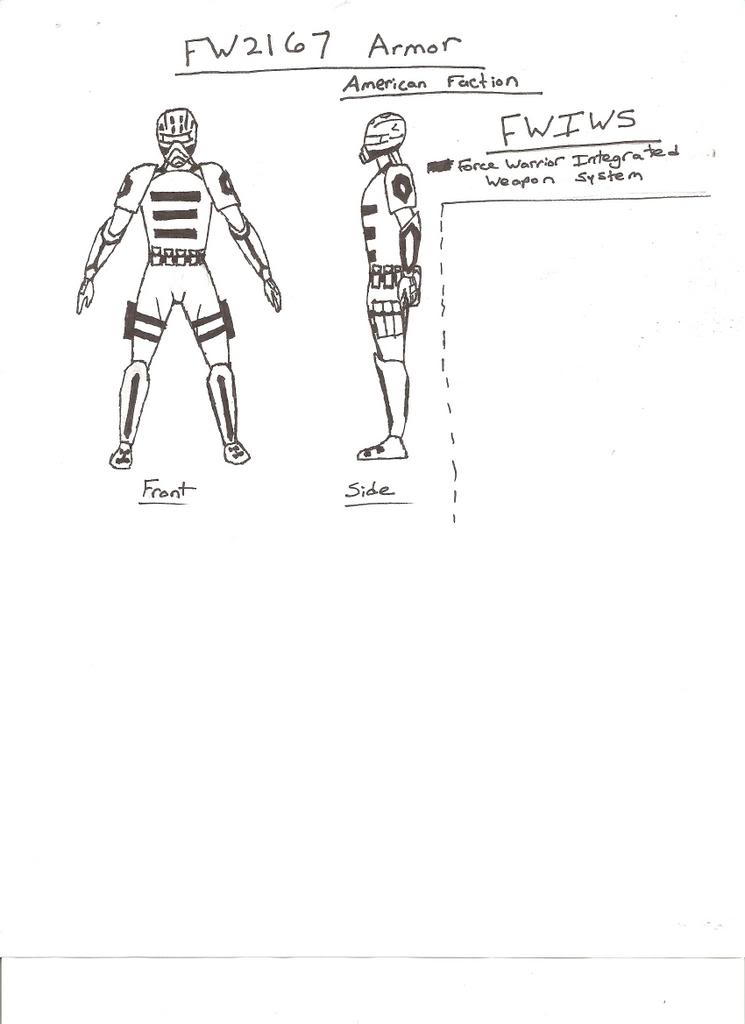 FW2167 Armor
American Faction
FWIWS
Force Warrior Integrated
Weapon System
Front
Side